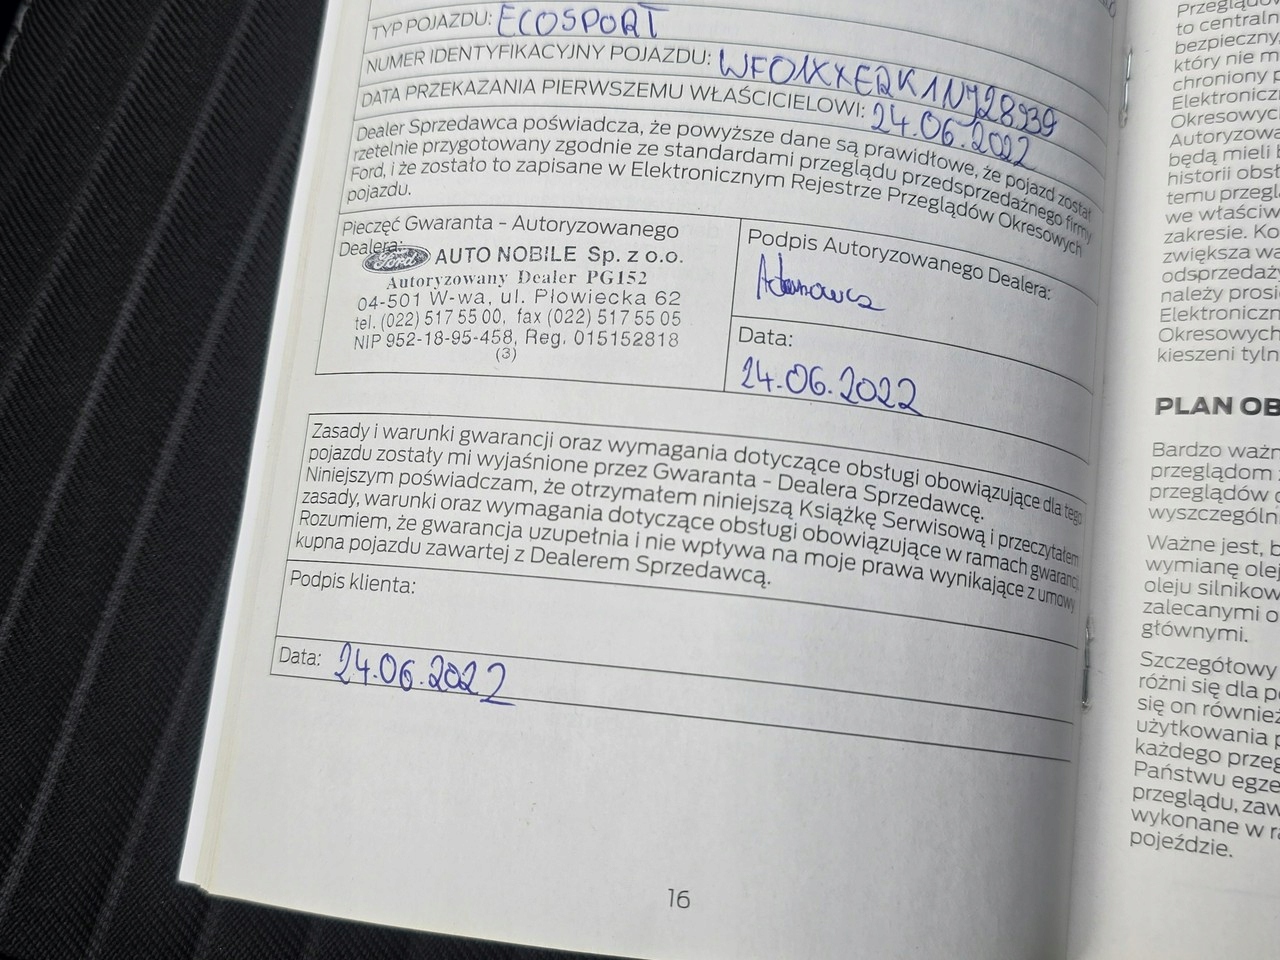 TYP POJAZDU: ECOSPORT
NUMER IDENTYFIKACYJNY POJAZDU: WF01XXERK1NJ28939
DATA PRZEKAZANIA PIERWSZEMU WŁAŚCICIELOWI: 24.06.2022
Dealer Sprzedawca poświadcza, że powyższe dane są prawidłowe, że pojazd został
rzetelnie przygotowany zgodnie ze standardami przeglądu przedsprzedażnego firmy
Ford, i że zostało to zapisane w Elektronicznym Rejestrze Przeglądów Okresowych
pojazdu.
Pieczęć Gwaranta - Autoryzowanego
Dealera:
Ford AUTO NOBILE Sp. z o.o.
Autoryzowany Dealer PG152
04-501 W-wa, ul. Płowiecka 62
tel. (022) 517 55 00, fax (022) 517 55 05
NIP 952-18-95-458, Reg. 015152818
(3)
Podpis Autoryzowanego Dealera:
Data:
24.06.2022
Zasady i warunki gwarancji oraz wymagania dotyczące obsługi obowiązujące dla tego
pojazdu zostały mi wyjaśnione przez Gwaranta - Dealera Sprzedawcę.
Niniejszym poświadczam, że otrzymałem niniejszą Książkę Serwisową i przeczytałem
zasady, warunki oraz wymagania dotyczące obsługi obowiązujące w ramach gwarancji.
Rozumiem, że gwarancja uzupełnia i nie wpływa na moje prawa wynikające z umowy
kupna pojazdu zawartej z Dealerem Sprzedawcą.
Podpis klienta:
Data: 24.06.2022
16
to centraln
bezpieczny,
który nie m
chroniony p
Elektroniczn
Okresowych
Autoryzowa
będą mieli
historii obst
temu przeglą
we właściw
zakresie. Ko
zwiększa wa
odsprzedaży
należy prosi
Elektroniczn
Okresowych
kieszeni tyln
PLAN OB
Bardzo ważn
przeglądom
przeglądów
wyszczególn
Ważne jest, b
wymianę olej
oleju silnikow
zalecanymi o
głównymi.
Szczegółowy
różni się dla p
się on również
użytkowania p
każdego przeg
Państwu egze
przeglądu, zaw
wykonane w ra
pojeździe.